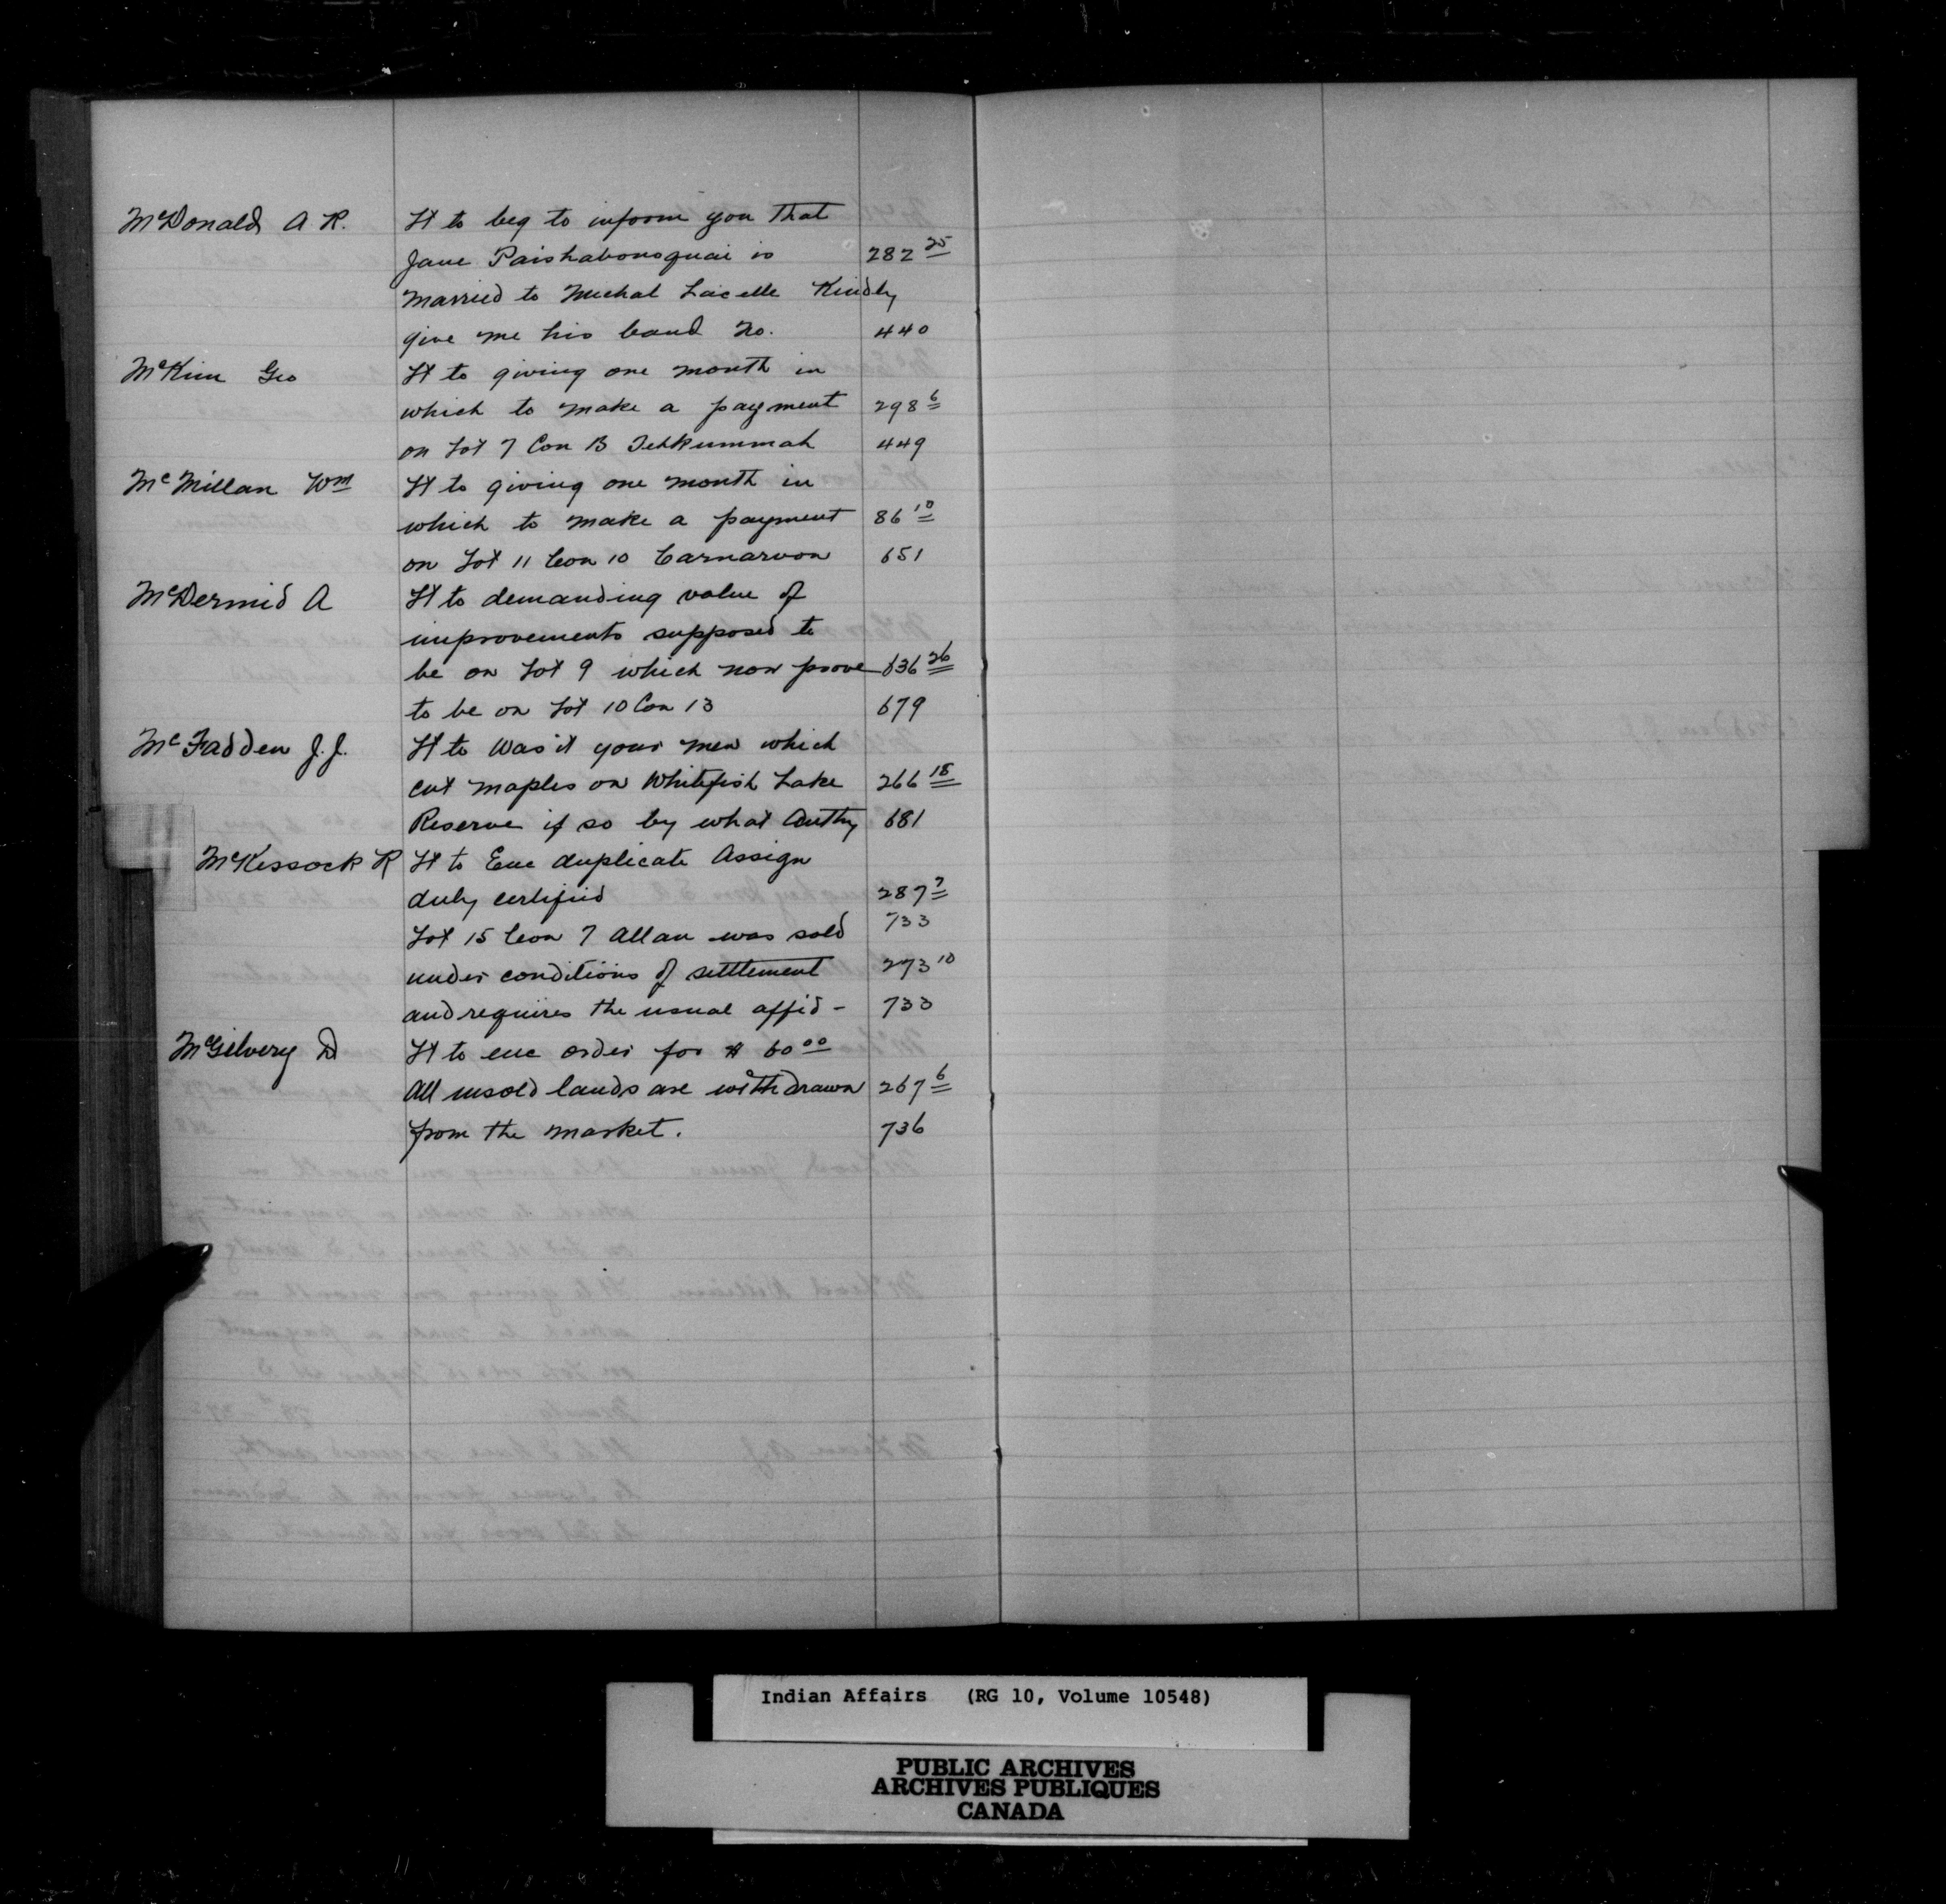 McDonald A R. Lt to beg to inform you that
Jane Paishabonoquai is 282 25
married to Michal Lacelle Kindly
give me his band No. 440
McKim Geo Lt to giving one month in
which to make a payment 298 6
on Lot 7 Con B Tehkummah 449
McMillan Wm Lt to giving one month in
which to make a payment 86 10
on Lot 11 Con 10 Carnarvon 651
McDermid A Lt to demanding value of
improvements supposed to
be on Lot 9 which now prove 636 26
to be on Lot 10 Con 13 679
McFadden J.J. Lt to Was it your men which
cut maples on Whitefish Lake 266 18
Reserve if so by what Authy 681
McKessock R Lt to Enc duplicate Assign
duly certified 287 7
Lot 15 Con 7 Allan was sold 733
under conditions of settlement 273 10
and requires the usual affid - 733
McGilvery D Lt to enc order for $ 60 00
All unsold lands are withdrawn 267 6
from the market. 736
Indian Affairs (RG 10, Volume 10548)
PUBLIC ARCHIVES
ARCHIVES PUBLIQUES
CANADA